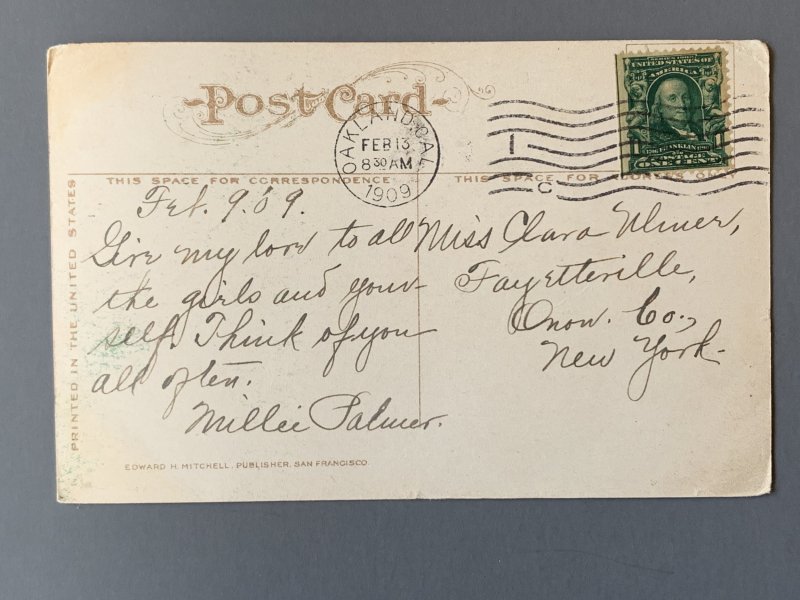 Post Card
OAKLAND, CAL.
FEB 13
8 30 AM
1909
1
C
SERIES 1902
UNITED STATES OF
AMERICA
1706 FRANKLIN 1790
POSTAGE
ONE CENT
THIS SPACE FOR CORRESPONDENCE
THIS SPACE FOR ADDRESS ONLY
PRINTED IN THE UNITED STATES
Feb. 9. '09.
Give my love to all
the girls and your-
self. Think of you
all often.
Millie Palmer.
Miss Clara Ulmer,
Fayetteville,
Onon. Co.,
New York.
EDWARD H. MITCHELL, PUBLISHER, SAN FRANCISCO.